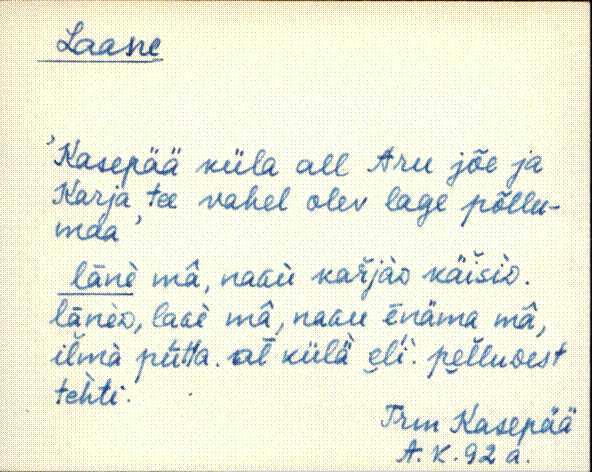 Laane
'Kasepää küla all Aru jõe ja
Karja tee vahel olev lage põllu-
maa'
lānè mâ, naaù kařjàᴅ käišiᴅ.
lānèᴅ, laaè mâ, naau ēnäma mâ,
iľmà pūtta. at külä̀ e̮li. pe̮lluᴅest
tehti.
Trm Kasepää
A. K. 92 a.